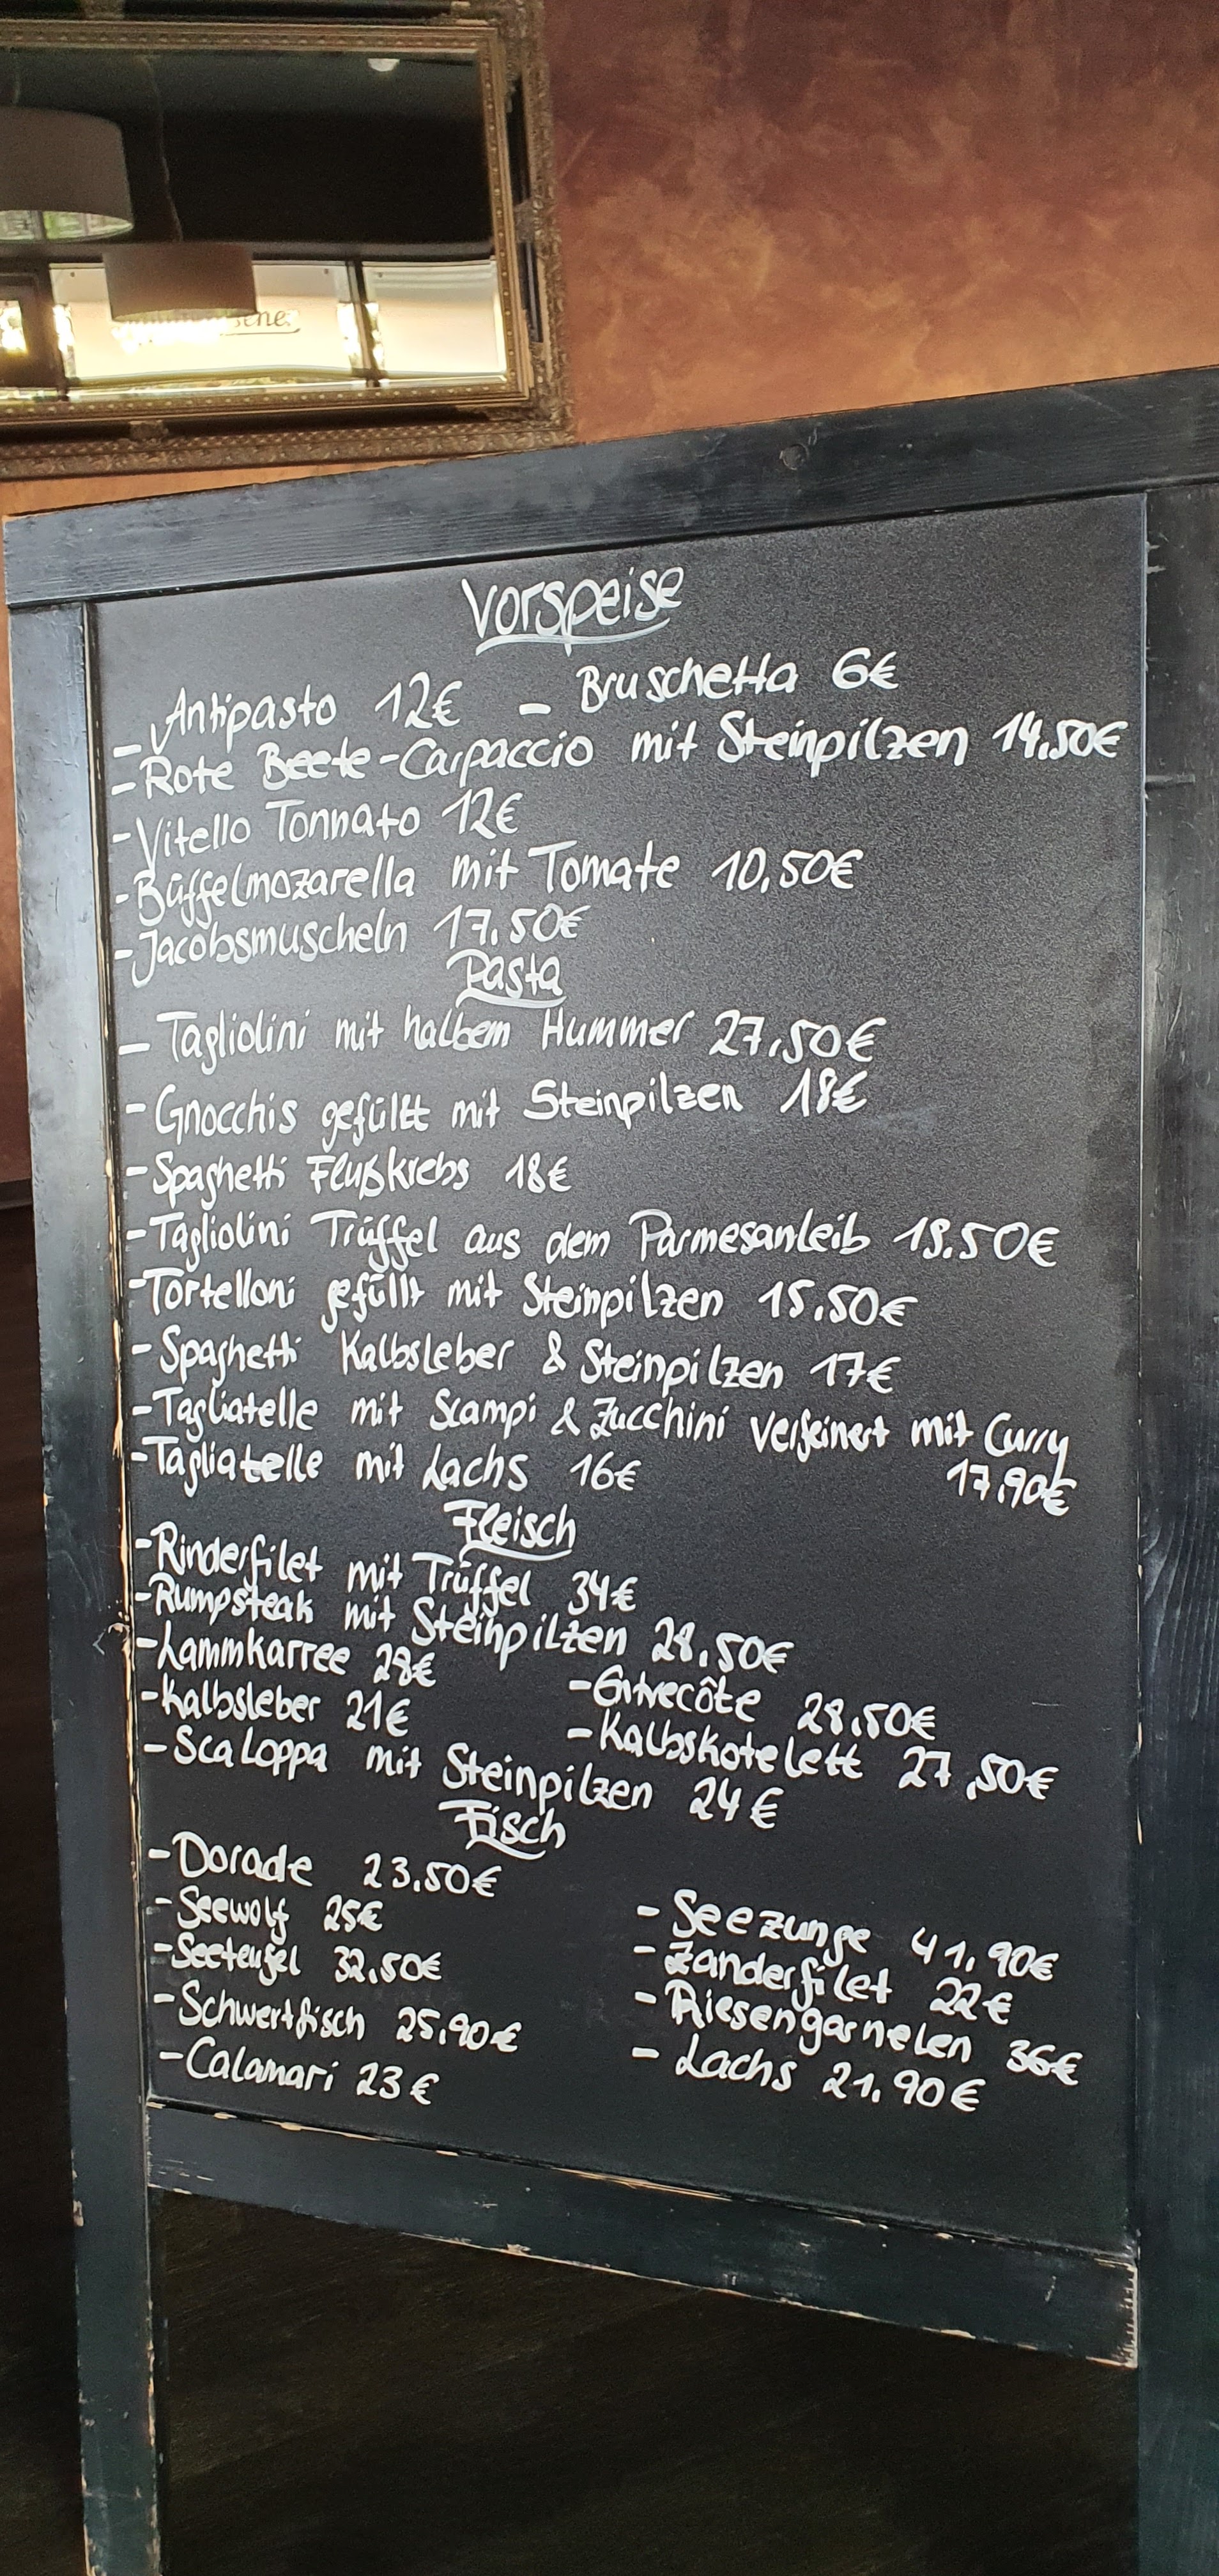 Vorspeise
- Antipasto 12€ - Bruschetta 6€
- Rote Beete-Carpaccio mit Steinpilzen 14.50€
- Vitello Tonnato 12€
- Büffelmozarella mit Tomate 10,50€
- Jacobsmuscheln 17.50€
Pasta
- Tagliolini mit halbem Hummer 27,50€
- Gnocchis gefüllt mit Steinpilzen 18€
- Spaghetti Flußkrebs 18€
- Tagliolini Trüffel aus dem Parmesanleib 19.50€
- Tortelloni gefüllt mit Steinpilzen 15.50€
- Spaghetti Kalbsleber & Steinpilzen 17€
- Tagliatelle mit Scampi & Zucchini verfeinert mit Curry
17.90€
- Tagliatelle mit Lachs 16€
Fleisch
- Rinderfilet mit Trüffel 34€
- Rumpsteak mit Steinpilzen 28,50€
- Lammkarree 28€
- Entrecôte 28.50€
- Kalbsleber 21€
- Kalbskotelett 27,50€
- Scaloppa mit Steinpilzen 24€
Fisch
- Dorade 23.50€
- Seewolf 25€
- Seezunge 41,90€
- Seeteufel 32.50€
- Zanderfilet 22€
- Schwertfisch 25,90€
- Riesengarnelen 36€
- Calamari 23€
- Lachs 21.90€